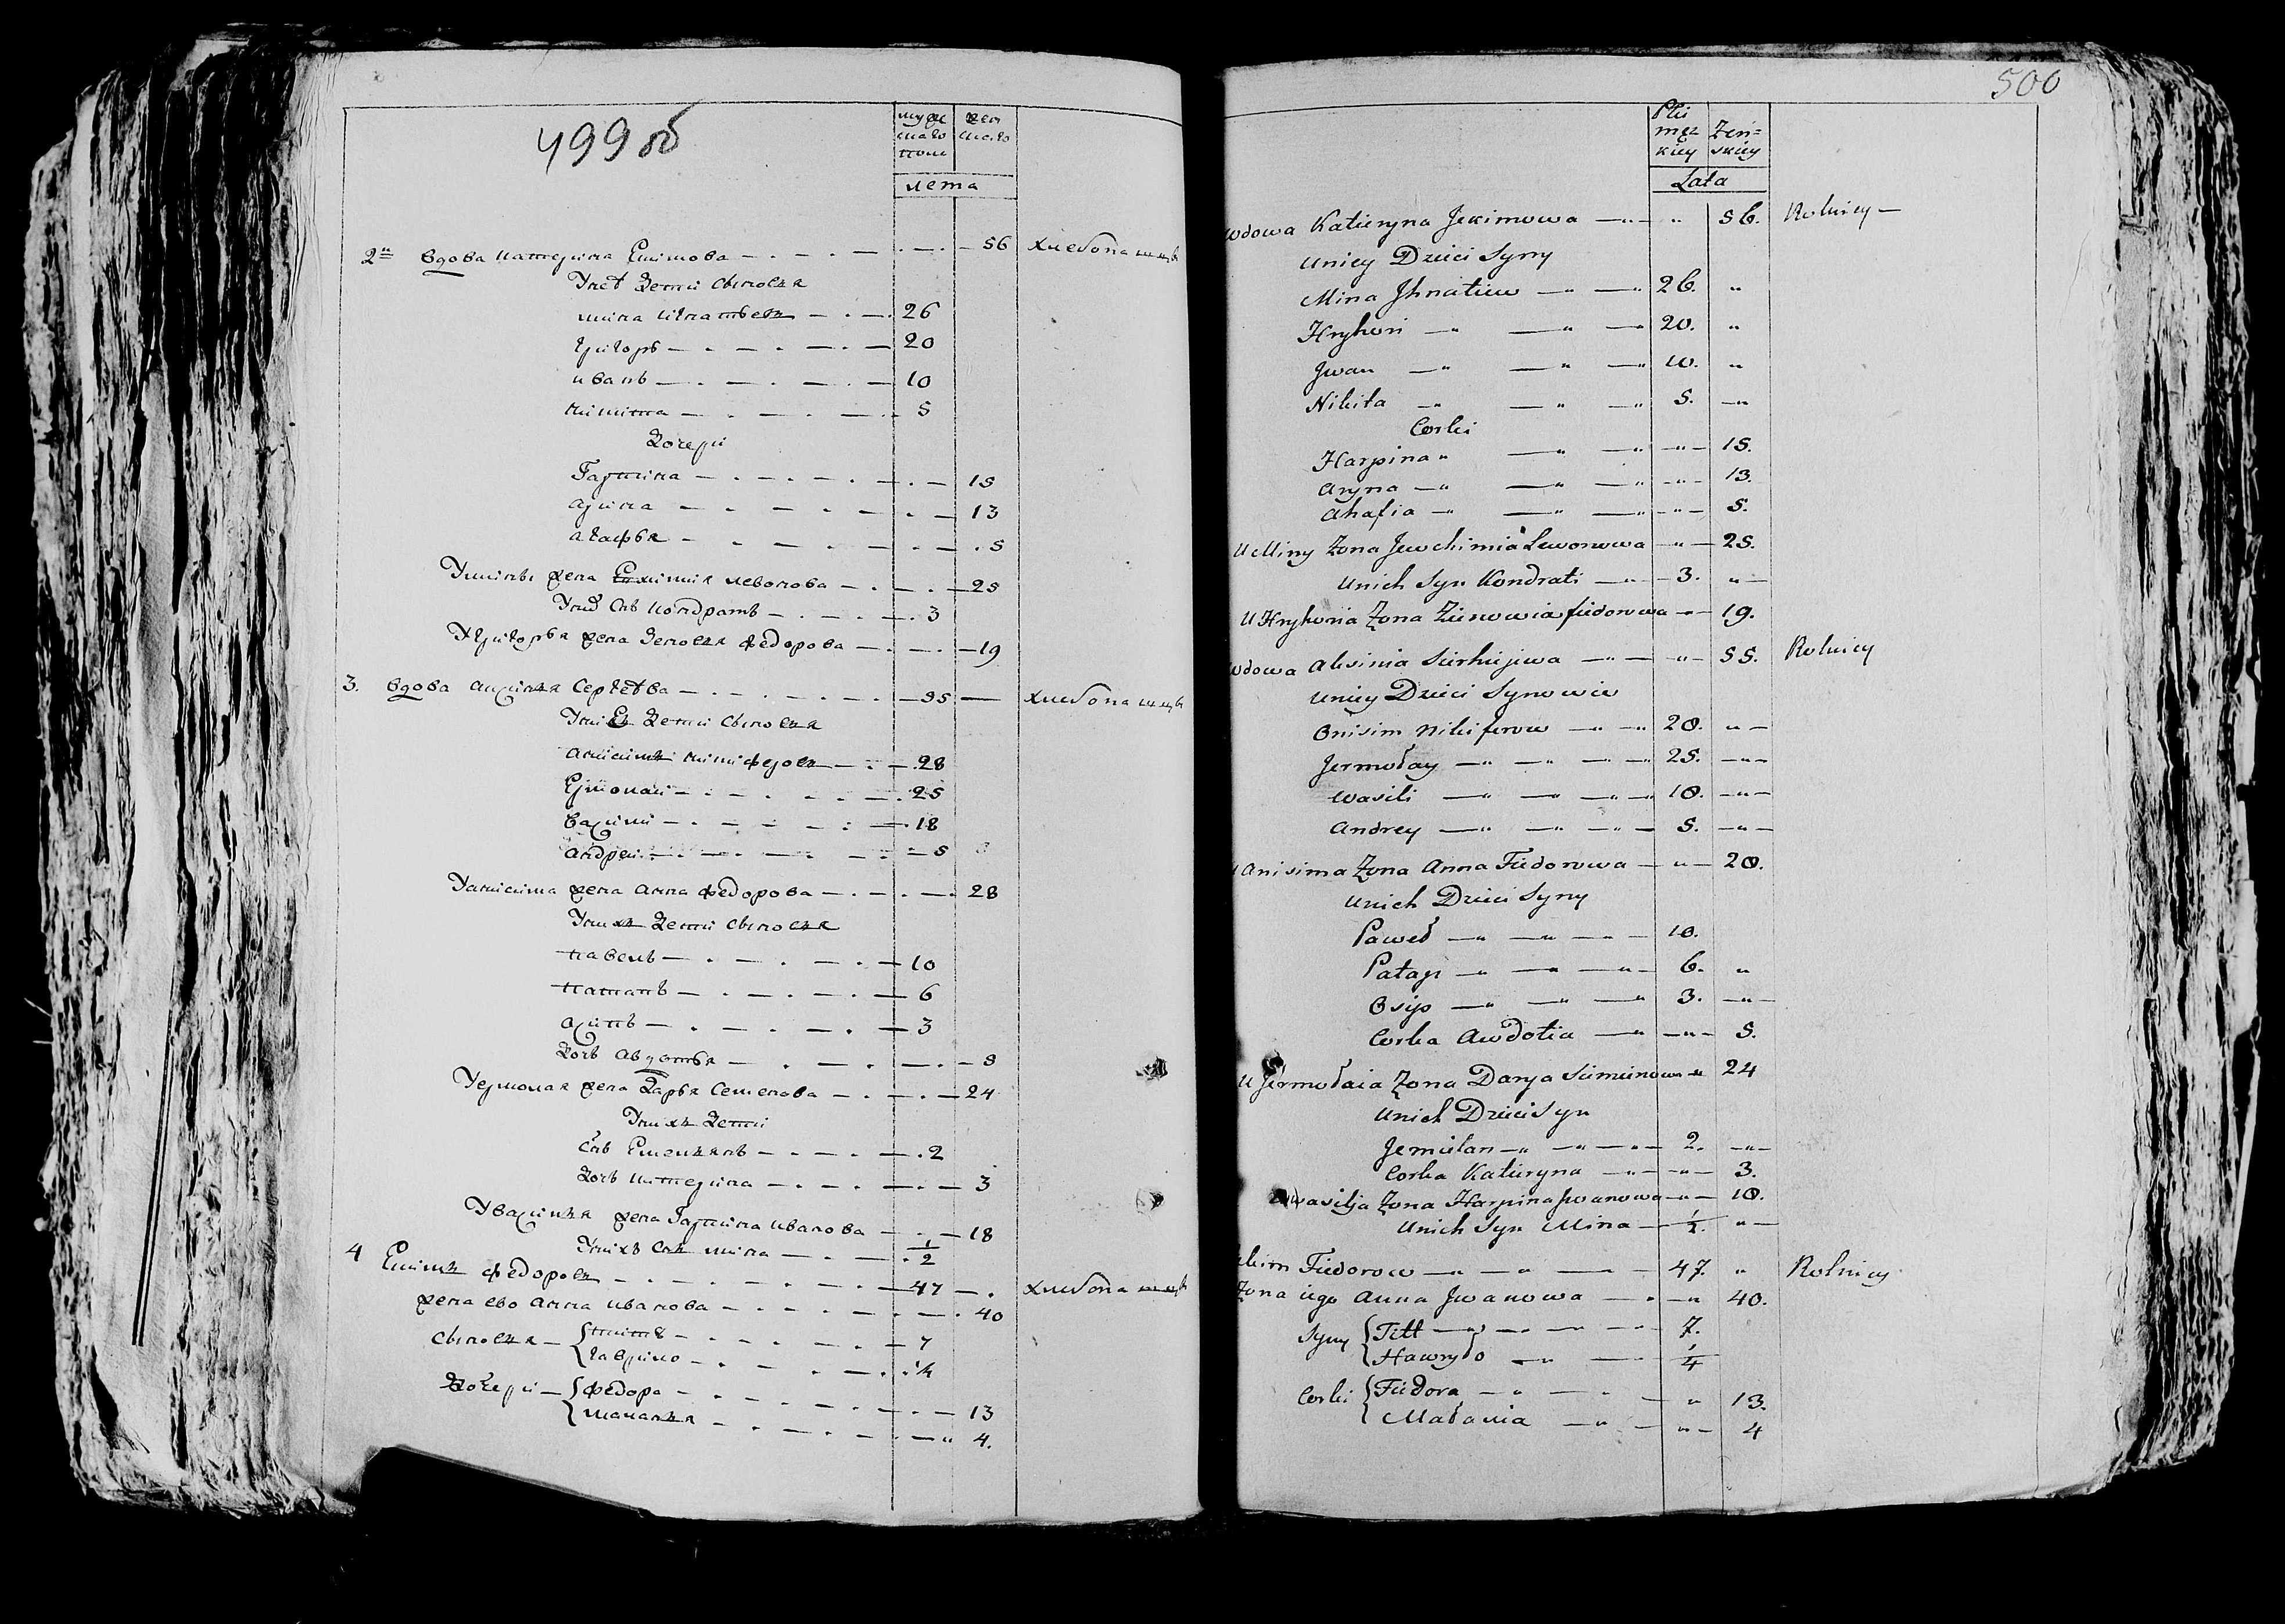 499 об
муже
ска го
полу
жен
ска го
лета
2й вдова катерина Екимова 56 хлебопашцы
У неё дети сыновья
мина игнатьевъ 26
григоръ 20
иванъ 10
никита 5
дочери
Гарпина 15
арина 13
агафья 5
У мины жена Ехимия левонова 25
У них сынъ кондратъ 3
У григорья жена зеновья федорова 19
3. вдова аксинья Сергеева 55 хлебопашцы
У ней дети сыновья
анисимъ никифоровъ 28
Ермолай 25
василий 18
андрей 5
У анисима жена анна федорова 28
У нихъ дети сыновья
павелъ 10
патапъ 6
осипъ 3
дочь авдотья 5
У ермолая жена дарья семенова 24
У нихъ дети
сынъ Емельянъ 2
дочь катерина 3
У василья жена гарпина иванова 18
У нихъ сынъ мина 1/2
4 Екимъ федоровъ 47 хлебопашцы
жена ево анна иванова 40
сыновья { титъ 7
гаврило 1/4
дочери { федора 13
маланья 4.
500
Płci
męz
kiey
Żeń=
skiey
Lata
wdowa Katieryna Jekimowa " 56. Rolnicy
Uniey Dzieci Syny
Mina Jhnatiew 26. "
Hryhori 20. "
Jwan 10. "
Nikita 5. "
Corki
Harpina " 15.
Aryna " 13.
Ahafia " 5.
U Miny Żona Jewchimia Lewonowa " 25.
Unich Syn Kondrati 3. "
U Hryhoria Żona Zienowia fiedorowa " 19.
wdowa Alesinia Sierhiejewa " 55. Rolnicy
Uniey Dzieci Synowie
Onisim Nikiferow 28. "
Jermołay 25. "
Wasili 18. "
Andrey 5. "
U Anisima Żona Anna Fiedorowa " 28.
Unich Dzieci Syny
Paweł 10.
Patap 6. "
Osip 3. "
Corka Awdotia " 5.
U Jermołaia Żona Darya Siemionowa " 24
Unich Dzieci Syn
Jemielan 2. "
Corka Katieryna " 3.
U Wasilja Żona Harpina Jwanowa " 18.
Unich Syn Mina 1/2. "
Jekim Fiedorow 47. " Rolnicy
Żona iego Anna Jwanowa " 40.
Syny { Titt 7.
Hawryło 1/4
Corki { Fiedora " 13.
Małania " 4